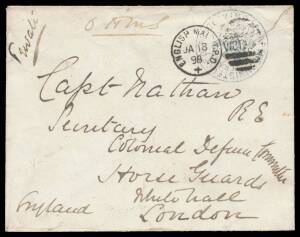 O H M S
Private
ENGLISH MAIL T.P.O.
JA 18
98
Capt Nathan
R E
Secretary
Colonial Defence Committee
Horse Guards
Whitehall
London
England